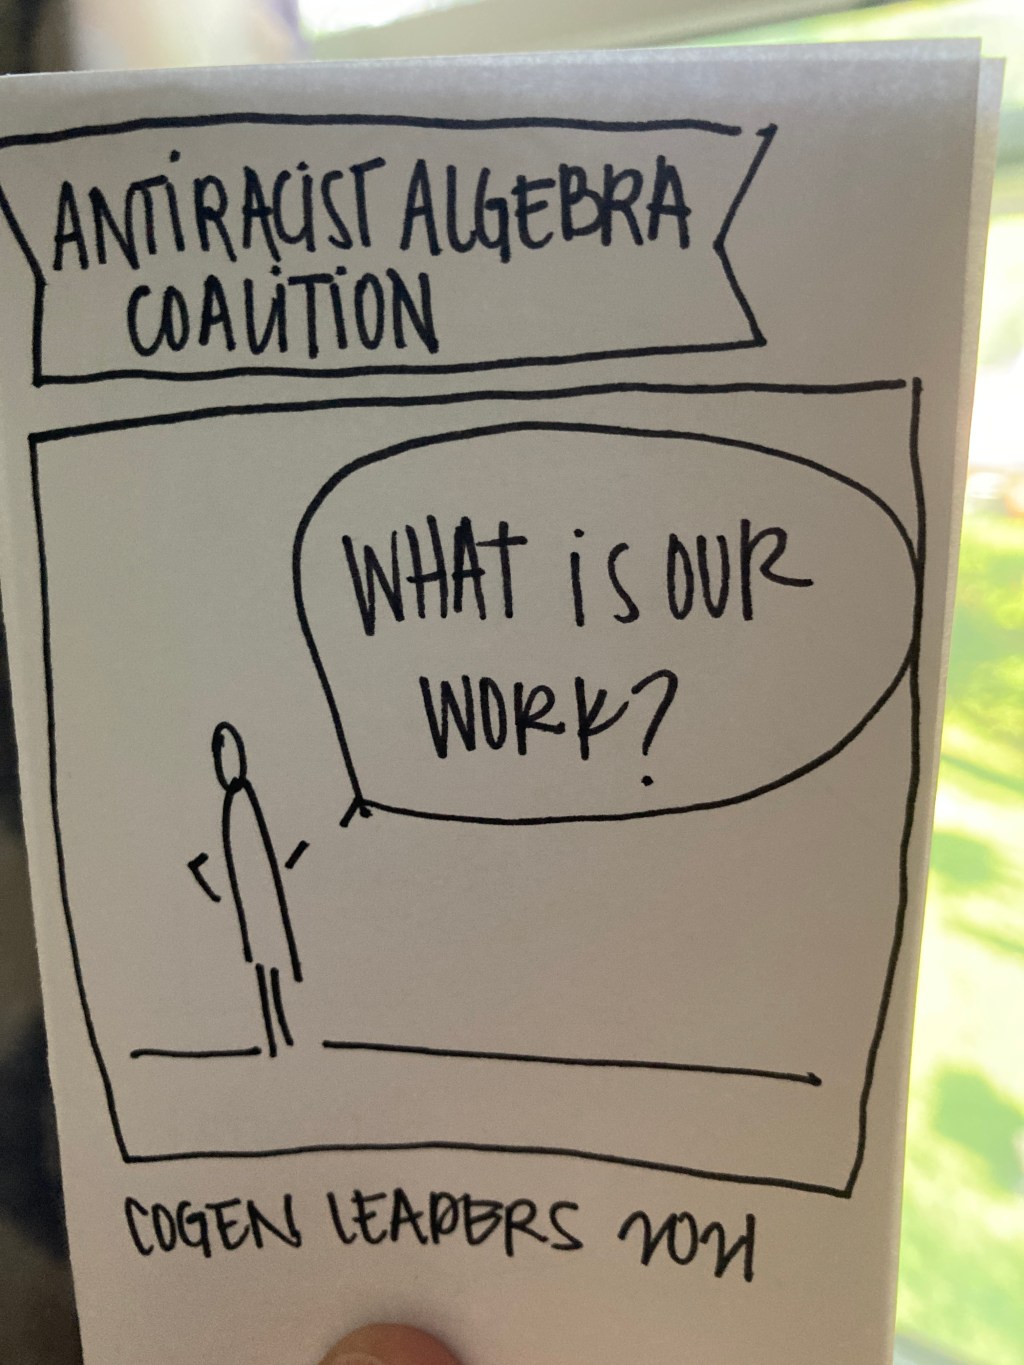 ANTIRACIST ALGEBRA
COALITION
WHAT IS OUR
WORK?
COGEN LEADERS 2021